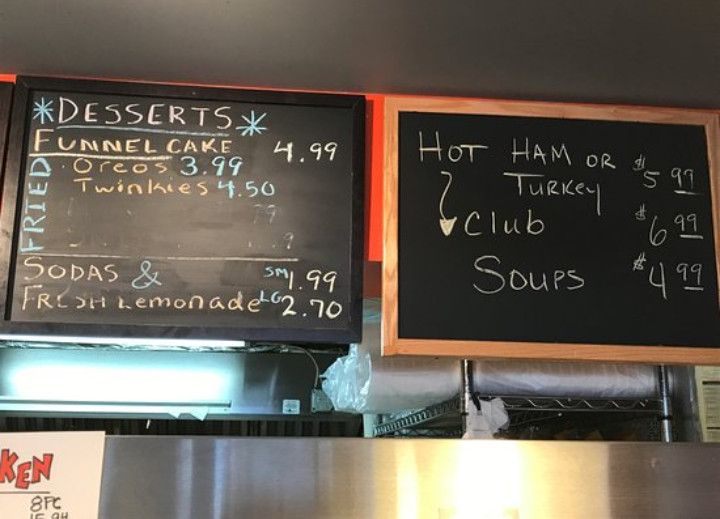 *DESSERTS*
FUNNEL CAKE 4.99
FRIED
· Oreos 3.99
· Twinkies 4.50
SODAS & SM 1.99
FRESH Lemonade LG 2.70
HOT HAM OR $5 99
TURKEY
Club $6 99
SOUPS $4 99
KEN
8PC